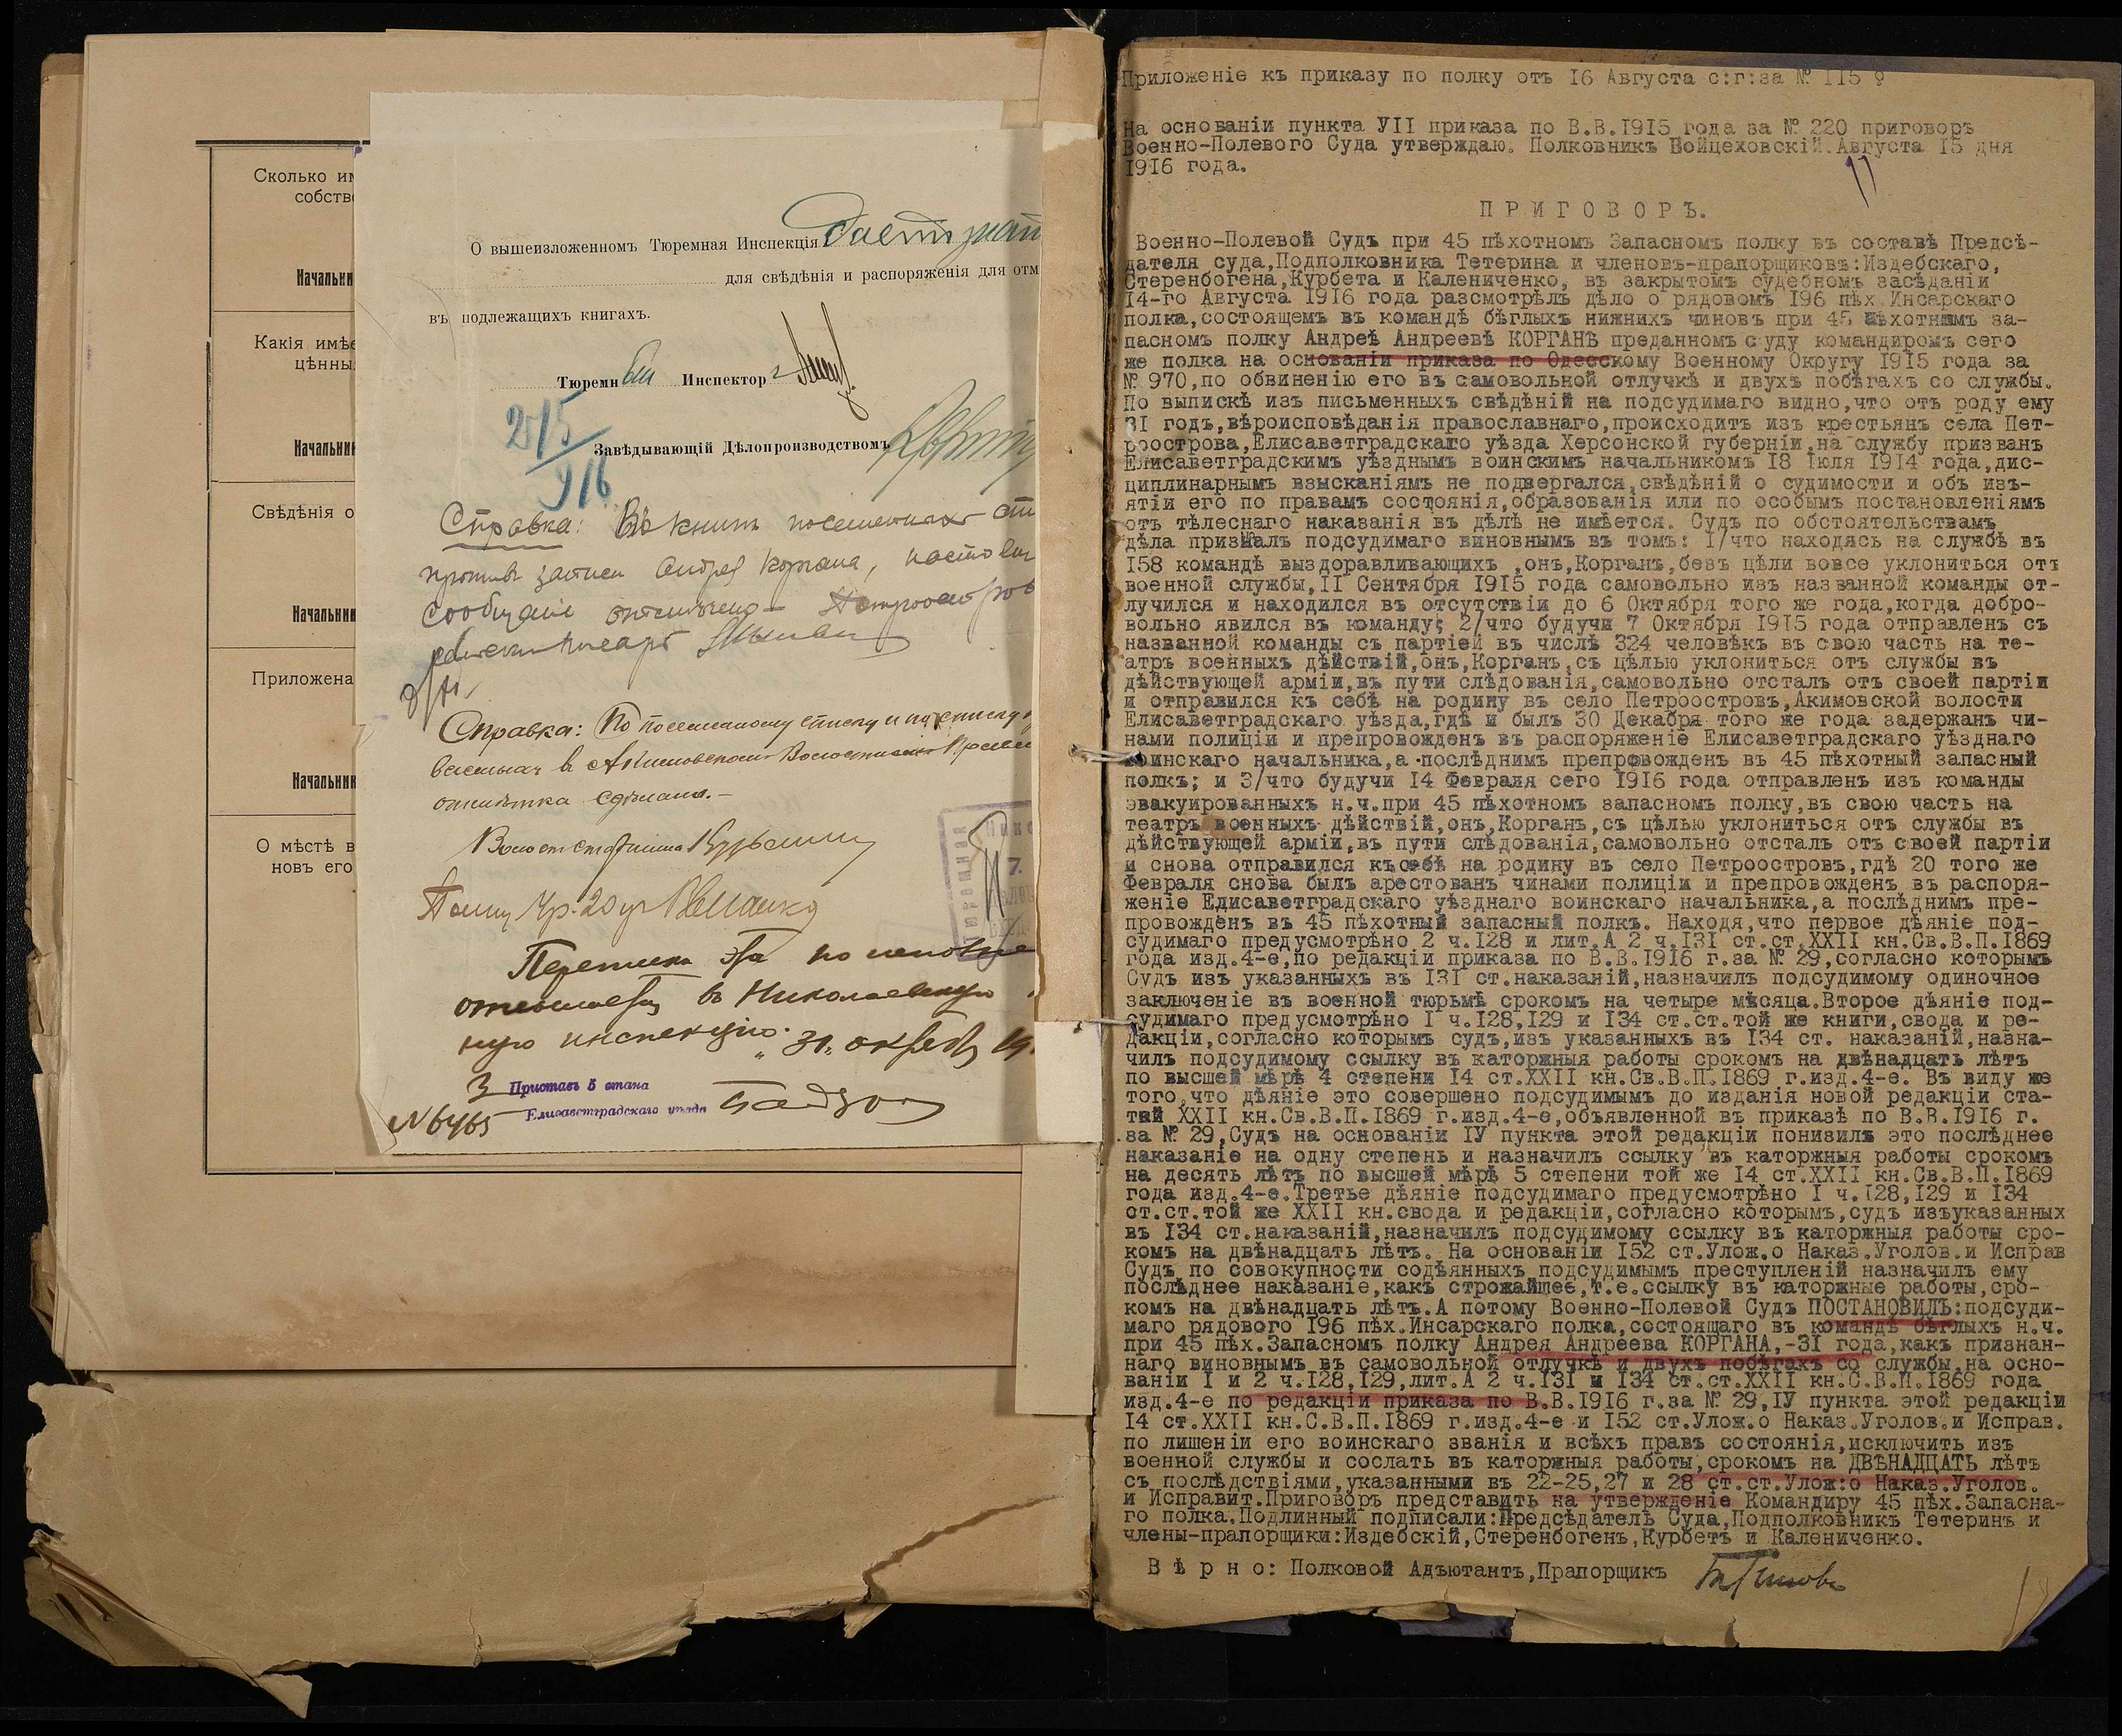 Сколько им
собстве
Начальни
Какія имѣе
цѣнны
Начальник
Свѣдѣнія о
Начальник
Приложена
Начальник
О мѣстѣ в
новъ его
О вышеизложенномъ Тюремная Инспекція даетъ знать
для свѣдѣнія и распоряженія для отм
въ подлежащихъ книгахъ.
Тюремный Инспекторъ
Завѣдывающій Дѣлопроизводствомъ
25/5
916
Справка: Въ книгѣ
противъ записи Андрея Коргана, настоящ
сообщеніе отмѣчено
Справка: По посемейному списку и
в Акимовскомъ Волостномъ Правле
отмѣтка сдѣлана.-
Волост старшина
Переписка эта по исполне
въ Николаевскую
ную инспекцію. „31„ октября 19
Приставъ 5 стана
Елисаветградскаго уѣзда
№6465
Приложеніе къ приказу по полку отъ 16 Августа с:г:за № 115
На основаніи пункта УІІ приказа по В.В.1915 года за № 220 приговоръ
Военно-Полевого Суда утверждаю. Полковникъ Войцеховскій.Августа 15 дня
1916 года.
П Р И Г О В О Р Ъ.
Военно-Полевой Судъ при 45 пѣхотномъ Запасномъ полку въ составѣ Предсѣ-
дателя суда,Подполковника Тетерина и членовъ-прапорщиковъ:Издебскаго,
Стеренбогена,Курбета и Калениченко, въ закрытомъ судебномъ засѣданіи
14-го Августа 1916 года разсмотрѣлъ дѣло о рядовомъ 196 пѣх.Инсарскаго
полка,состоящемъ въ командѣ бѣглыхъ нижнихъ чиновъ при 45 пѣхотномъ за-
пасномъ полку Андреѣ Андреевѣ КОРГАНЪ преданномъ суду командиромъ сего
же полка на основаніи приказа по Одесскому Военному Округу 1915 года за
№ 970,по обвиненію его въ самовольной отлучкѣ и двухъ побѣгахъ со службы.
По выпискѣ изъ письменныхъ свѣдѣній на подсудимаго видно,что отъ роду ему
31 годъ,вѣроисповѣданія православнаго,происходитъ изъ крестьянъ села Пет-
роострова,Елисаветградскаго уѣзда Херсонской губерніи,на службу призванъ
Елисаветградскимъ уѣзднымъ воинскимъ начальникомъ 18 Іюля 1914 года,дис-
циплинарнымъ взысканіямъ не подвергался,свѣдѣній о судимости и объ изъ-
ятіи его по правамъ состоянія,образованія или по особымъ постановленіямъ
отъ тѣлеснаго наказанія въ дѣлѣ не имѣется. Судъ по обстоятельствамъ
дѣла призналъ подсудимаго виновнымъ въ томъ: 1/что находясь на службѣ въ
158 командѣ выздоравливающихъ ,онъ,Корганъ,безъ цѣли вовсе уклониться отъ
военной службы,11 Сентября 1915 года самовольно изъ названной команды от-
лучился и находился въ отсутствіи до 6 Октября того же года,когда добро-
вольно явился въ команду; 2/что будучи 7 Октября 1915 года отправленъ съ
названной команды съ партіей въ числѣ 324 человѣкъ въ свою часть на те-
атръ военныхъ дѣйствій,онъ,Корганъ,съ цѣлью уклониться отъ службы въ
дѣйствующей арміи,въ пути слѣдованія,самовольно отсталъ отъ своей партіи
и отправился къ себѣ на родину въ село Петроостровъ,Акимовской волости
Елисаветградскаго уѣзда,гдѣ и былъ 30 Декабря того же года задержанъ чи-
нами полиціи и препровожденъ въ распоряженіе Елисаветградскаго уѣзднаго
воинскаго начальника,а послѣднимъ препровожденъ въ 45 пѣхотный запасный
полкъ; и 3/что будучи 14 Февраля сего 1916 года отправленъ изъ команды
эвакуированныхъ н.ч.при 45 пѣхотномъ запасномъ полку,въ свою часть на
театръ военныхъ дѣйствій,онъ,Корганъ,съ цѣлью уклониться отъ службы въ
дѣйствующей арміи,въ пути слѣдованія,самовольно отсталъ отъ своей партіи
и снова отправился къ себѣ на родину въ село Петроостровъ,гдѣ 20 того же
Февраля снова былъ арестованъ чинами полиціи и препровожденъ въ распоря-
женіе Елисаветградскаго уѣзднаго воинскаго начальника,а послѣднимъ пре-
провожденъ въ 45 пѣхотный запасный полкъ. Находя,что первое дѣяніе под-
судимаго предусмотрѣно 2 ч.128 и лит.А 2 ч.131 ст.ст.XXII кн.Св.В.П.1869
года изд.4-е,по редакціи приказа по В.В.1916 г.за № 29,согласно которымъ
Судъ изъ указанныхъ въ 131 ст.наказаній,назначилъ подсудимому одиночное
заключеніе въ военной тюрьмѣ срокомъ на четыре мѣсяца.Второе дѣяніе под-
судимаго предусмотрѣно 1 ч.128,129 и 134 ст.ст.той же книги,свода и ре-
дакціи,согласно которымъ судъ,изъ указанныхъ въ 134 ст. наказаній,назна-
чилъ подсудимому ссылку въ каторжныя работы срокомъ на двѣнадцать лѣтъ
по высшей мѣрѣ 4 степени 14 ст.XXII кн.Св.В.П.1869 г.изд.4-е. Въ виду же
того,что дѣяніе это совершено подсудимымъ до изданія новой редакціи ста-
тей XXII кн.Св.В.П.1869 г.изд.4-е,объявленной въ приказѣ по В.В.1916 г.
за № 29,Судъ на основаніи ІУ пункта этой редакціи понизилъ это послѣднее
наказаніе на одну степень и назначилъ ссылку въ каторжныя работы срокомъ
на десять лѣтъ по высшей мѣрѣ 5 степени той же 14 ст.XXII кн.Св.В.П.1869
года изд.4-е.Третье дѣяніе подсудимаго предусмотрѣно 1 ч.128,129 и 134
ст.ст.той же XXII кн.свода и редакціи,согласно которымъ,судъ изъуказанныхъ
въ 134 ст.наказаній,назначилъ подсудимому ссылку въ каторжныя работы сро-
комъ на двѣнадцать лѣтъ. На основаніи 152 ст.Улож.о Наказ.Уголов.и Исправ
Судъ по совокупности содѣянныхъ подсудимымъ преступленій назначилъ ему
послѣднее наказаніе,какъ строжайшее,т.е.ссылку въ каторжные работы,сро-
комъ на двѣнадцать лѣтъ.А потому Военно-Полевой Судъ ПОСТАНОВИЛЪ:подсуди-
маго рядового 196 пѣх.Инсарскаго полка,состоящаго въ командѣ бѣглыхъ н.ч.
при 45 пѣх.Запасномъ полку Андрея Андреева КОРГАНА,-31 года,какъ признан-
наго виновнымъ въ самовольной отлучкѣ и двухъ побѣгахъ со службы,на осно-
ваніи 1 и 2 ч.128,129,лит.А 2 ч.131 и 134 ст.ст.XXII кн.С.В.П.1869 года
изд.4-е по редакціи приказа по В.В.1916 г.за № 29,ІУ пункта этой редакціи
14 ст.XXII кн.С.В.П.1869 г.изд.4-е и 152 ст.Улож.о Наказ.Уголов.и Исправ.
по лишеніи его воинскаго званія и всѣхъ правъ состоянія,исключить изъ
военной службы и сослать въ каторжныя работы,срокомъ на ДВѢНАДЦАТЬ лѣтъ
съ послѣдствіями,указанными въ 22-25,27 и 28 ст.ст.Улож:о Наказ.Уголов.
и Исправит.Приговоръ представить на утвержденіе Командиру 45 пѣх.Запасна-
го полка.Подлинный подписали:Предсѣдатель Суда,Подполковникъ Тетеринъ и
члены-прапорщики:Издебскій,Стеренбогенъ,Курбетъ и Калениченко.
В ѣ р н о: Полковой Адъютантъ,Прапорщикъ